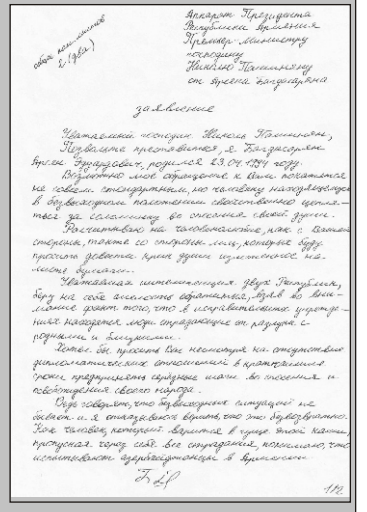 общ. кол. листов
2 (два)
Аппарат Президента
Республики Армения
Премьер-Министру
господину
Николо Пашиняну
от Арсена Багдасаряна
заявление
Уважаемый господин Николь Пашинян,
Позвольте представиться, я Багдасарян
Арсен Эдуардович, родился 23.04.1994 году.
Возможно мое обращение к Вам покажется
не совсем стандартным, но человеку находящемуся
в безвыходном положении свойственно цепля-
ться за соломинку во спасения своей души.
Рассчитываю на человеколюбие, как с Вашей
стороны, так и со стороны лиц, которых буду
просить довести крик души изложенное на
листе бумаги.
Уважаемая интеллигенция двух Республик,
беру на себя смелость обратиться, взяв во вни-
мание факт того, что в исправительных учрежде-
ниях находятся люди страдающие от разлуки с
родными и близкими.
Хотел бы просить Вас несмотря на отсутствие
дипломатических отношений в кратчайшие
сроки предпринять серьезные шаги во спасения и
освобождения своего народа.
Ведь говорят, что безвыходных ситуаций не
бывает и я отказываюсь верить, что это безвозвратно.
Как человек, который варится в гуще этой каши,
пропуская через себя все страдания, понимаю, что
испытывают азербайджанцы в Армении.
1/2